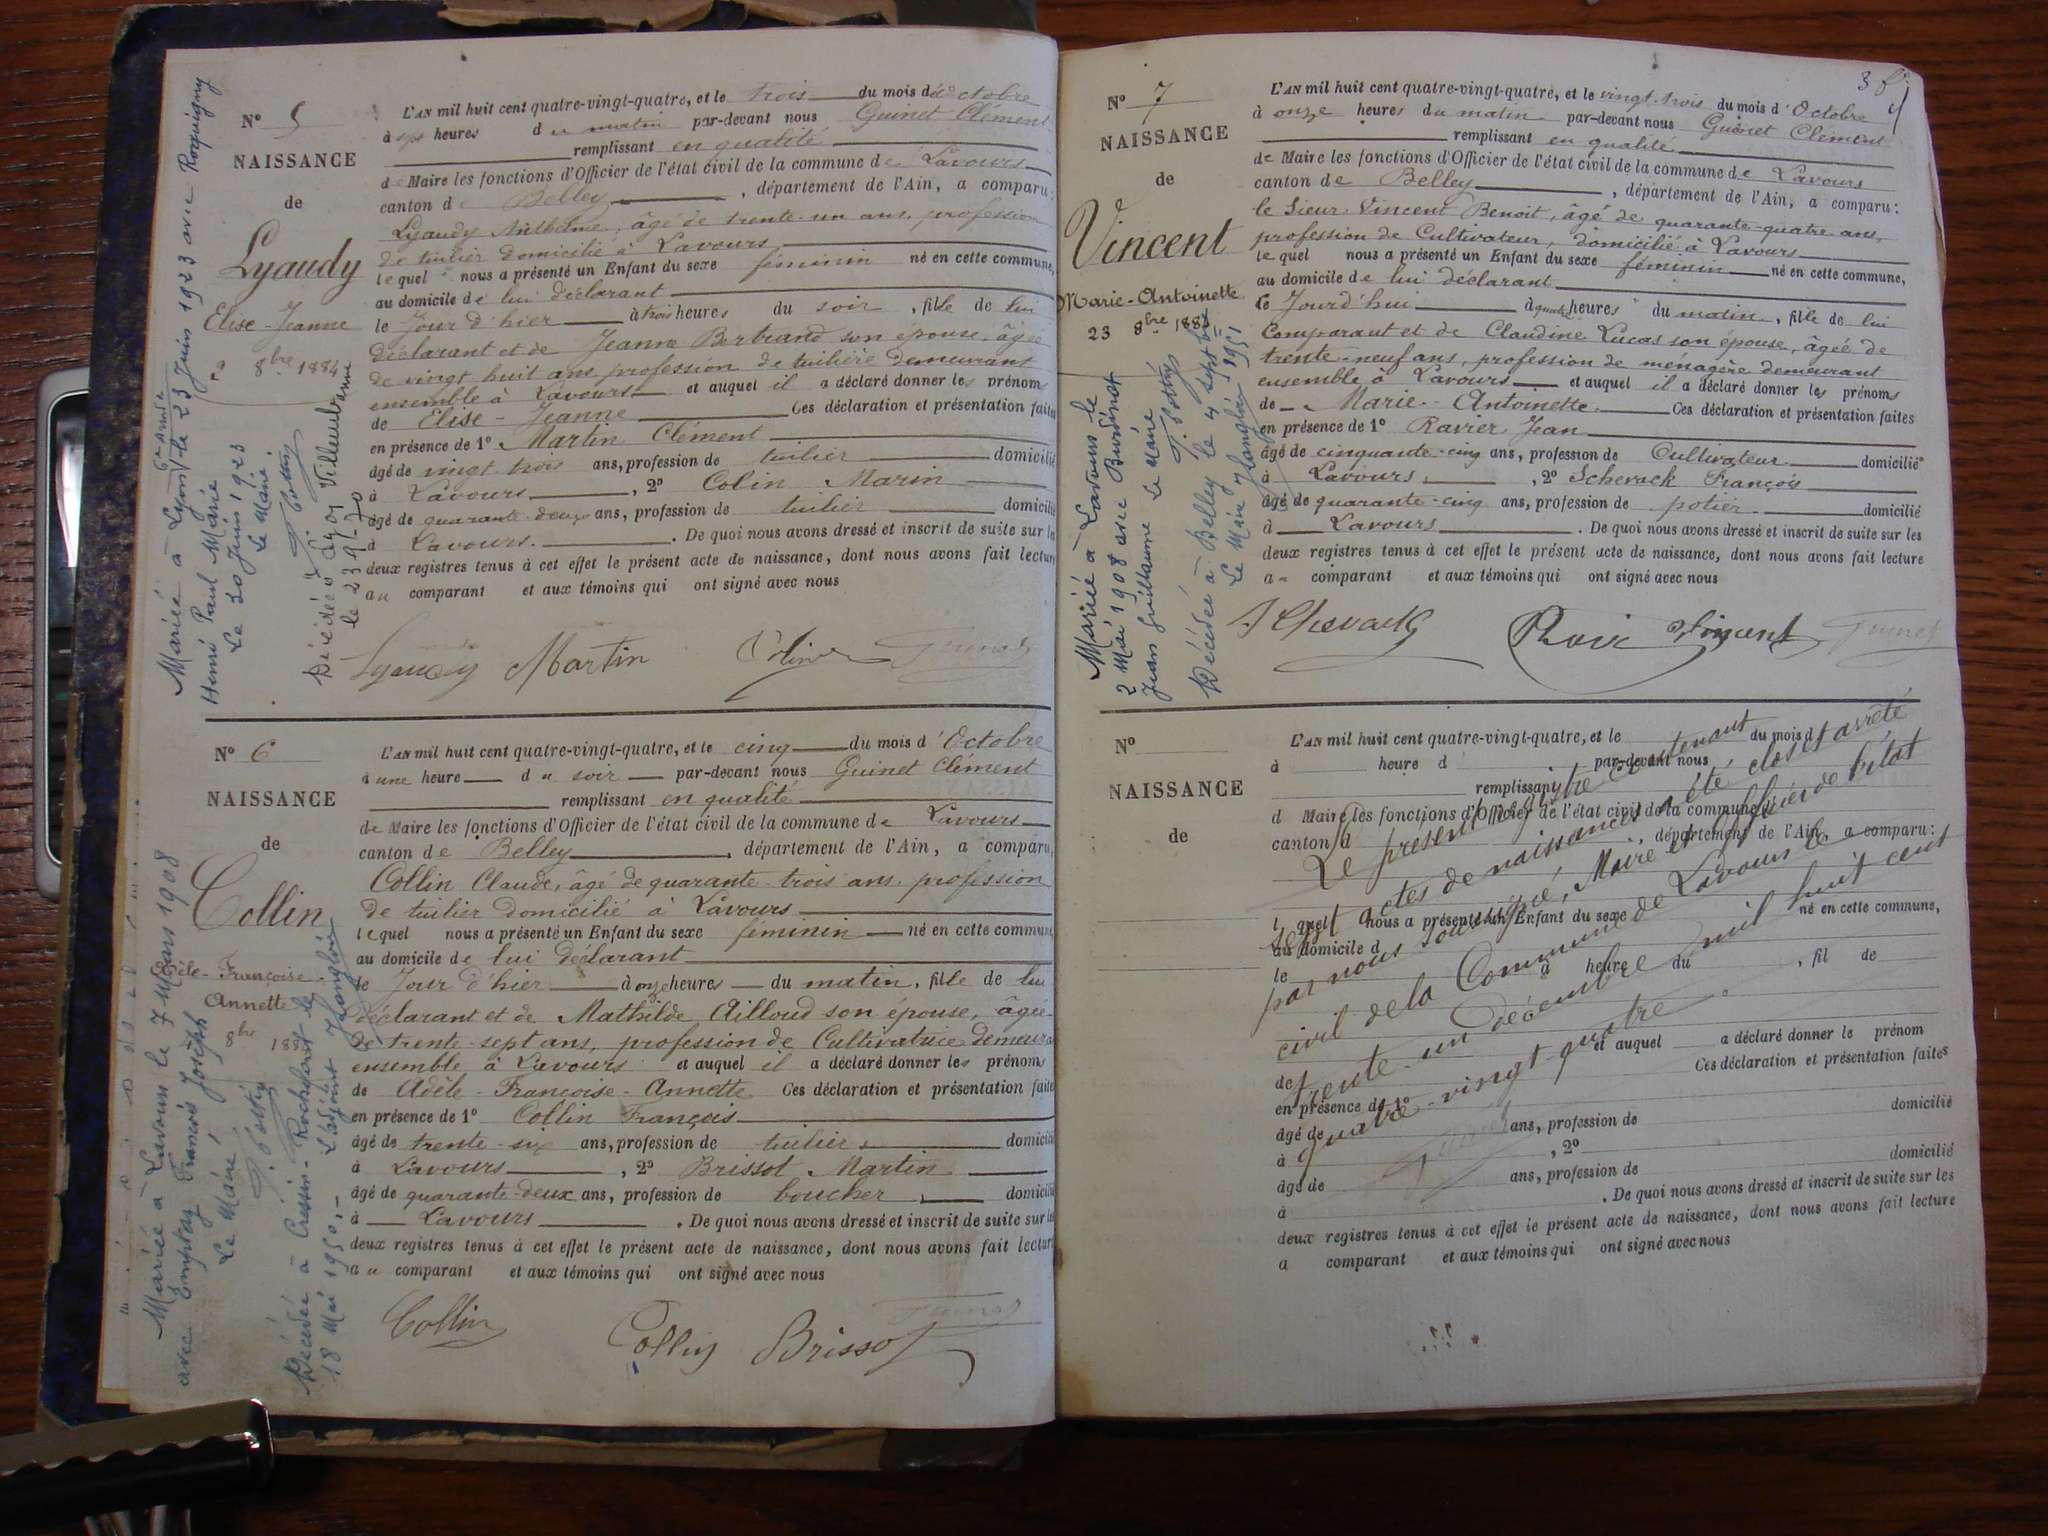 Nº 5
NAISSANCE
de
Lyaudy
Elise-Jeanne
8bre 1884
Mariée à Lyon 6e arrdt le 23 Juin 1923 avec Roquigny
Henri Paul Marie
Le 30 Juin 1923
Le Maire
Décédée à Villeurbanne
le 23
L'AN mil huit cent quatre-vingt-quatre, et le trois du mois d'octobre
à sept heures du matin par-devant nous Guinet Clément
remplissant en qualité
de Maire les fonctions d'Officier de l'état civil de la commune de Lavours
canton de Belley, département de l'Ain, a comparu:
Lyaudy Anthelme, âgé de trente-un ans, profession
de tuilier domicilié à Lavours
lequel nous a présenté un Enfant du sexe féminin né en cette commune,
au domicile de lui déclarant
le Jour d'hier à trois heures du soir, fille de lui
déclarant et de Jeanne Bertrand son épouse, âgée
de vingt huit ans, profession de tuilière demeurant
ensemble à Lavours et auquel il a déclaré donner les prénoms
de Elise-Jeanne Ces déclaration et présentation faites
en présence de 1º Martin Clément
âgé de vingt trois ans, profession de tuilier domicilié
à Lavours, 2º Colin Marin
âgé de quarante-deux ans, profession de tuilier domicilié
à Lavours. De quoi nous avons dressé et inscrit de suite sur les
deux registres tenus à cet effet le présent acte de naissance, dont nous avons fait lecture
au comparant et aux témoins qui ont signé avec nous
Lyaudy Martin Colin Guinet
Nº 6
NAISSANCE
de
Collin
Adèle-Françoise-
Annette
8bre 188
Mariée à Lavours le 7 Mars 1908
avec Emptoz François Joseph
Le Maire
Décédée à Cressin-Rochefort le
18 Mai 1950.-
L'adjoint
L'AN mil huit cent quatre-vingt-quatre, et le cinq du mois d'Octobre
à une heure du soir par-devant nous Guinet Clément
remplissant en qualité
de Maire les fonctions d'Officier de l'état civil de la commune de Lavours
canton de Belley, département de l'Ain, a comparu,
Collin Claude, âgé de quarante-trois ans, profession
de tuilier domicilié à Lavours
lequel nous a présenté un Enfant du sexe féminin né en cette commune,
au domicile de lui déclarant
le Jour d'hier à onze heures du matin, fille de lui
déclarant et de Mathilde Ailloud son épouse, âgée
de trente-sept ans, profession de Cultivatrice demeurant
ensemble à Lavours et auquel il a déclaré donner les prénoms
de Adèle-Françoise-Annette Ces déclaration et présentation faites
en présence de 1º Collin François
âgé de trente-six ans, profession de tuilier, domicilié
à Lavours, 2º Brissot Martin
âgé de quarante-deux ans, profession de boucher, domicilié
à Lavours. De quoi nous avons dressé et inscrit de suite sur les
deux registres tenus à cet effet le présent acte de naissance, dont nous avons fait lecture
au comparant et aux témoins qui ont signé avec nous
Collin Collin Brissot Guinet
Nº 7
NAISSANCE
de
Vincent
Marie-Antoinette
23 8bre 188
Mariée à Lavours le
2 Mai 1908 avec
Jean Guillaume Le Maire
Décédée à Belley le 4 septbre 1951
Le Maire
L'AN mil huit cent quatre-vingt-quatre, et le vingt-trois du mois d'Octobre
à onze heures du matin par-devant nous Guinet Clément
remplissant en qualité
de Maire les fonctions d'Officier de l'état civil de la commune de Lavours
canton de Belley, département de l'Ain, a comparu:
le Sieur Vincent Benoit, âgé de quarante-quatre ans,
profession de Cultivateur, domicilié à Lavours
lequel nous a présenté un Enfant du sexe féminin né en cette commune,
au domicile de lui déclarant
le Jourd'hui à quatre heures du matin, fille de lui
Comparant et de Claudine Lucas son épouse, âgée de
trente-neuf ans, profession de ménagère demeurant
ensemble à Lavours et auquel il a déclaré donner les prénoms
de Marie-Antoinette. Ces déclaration et présentation faites
en présence de 1º Ravier Jean
âgé de cinquante-cinq ans, profession de Cultivateur domicilié
à Lavours, 2º Scherack François
âgé de quarante-cinq ans, profession de potier domicilié
à Lavours. De quoi nous avons dressé et inscrit de suite sur les
deux registres tenus à cet effet le présent acte de naissance, dont nous avons fait lecture
au comparant et aux témoins qui ont signé avec nous
Vincent Guinet
Nº
NAISSANCE
de
L'AN mil huit cent quatre-vingt-quatre, et le du mois d
à heure d par-devant nous
remplissant
d Maire les fonctions d'Officier de l'état civil de la commune d
canton d, département de l'Ain, a comparu:
l quel nous a présenté un Enfant du sexe né en cette commune,
au domicile d
le à heure du, fil de
et auquel a déclaré donner le prénom
de Ces déclaration et présentation faites
en présence de 1º
âgé de ans, profession de domicilié
à, 2º
âgé de ans, profession de domicilié
à. De quoi nous avons dressé et inscrit de suite sur les
deux registres tenus à cet effet le présent acte de naissance, dont nous avons fait lecture
a comparant et aux témoins qui ont signé avec nous
Le présent registre contenant
sept actes de naissances a été clos et arrêté
par nous soussigné, Maire et officier de l'état
civil de la Commune de Lavours le
trente-un décembre mil huit cent
quatre-vingt-quatre.